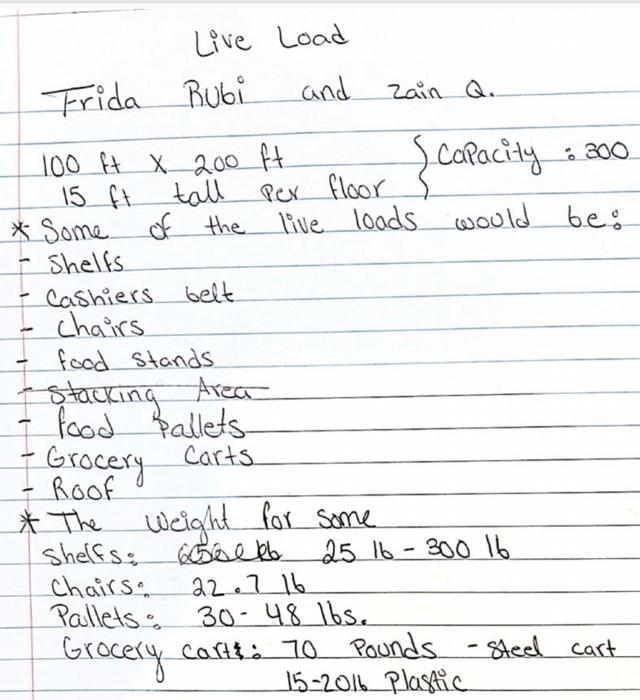 Live Load
Frida Rubi and Zain Q.
100 ft X 200 ft } Capacity : 300
15 ft tall per floor
* Some of the live loads would be:
- Shelfs
- Cashiers belt
- Chairs
- food stands
- Stacking Area
- food Pallets
- Grocery Carts
- Roof
* The weight for some
Shelfs: 25 lb - 300 lb
Chairs: 22.7 lb
Pallets: 30-48 lbs.
Grocery carts: 70 Pounds - Steel cart
15-20lb Plastic